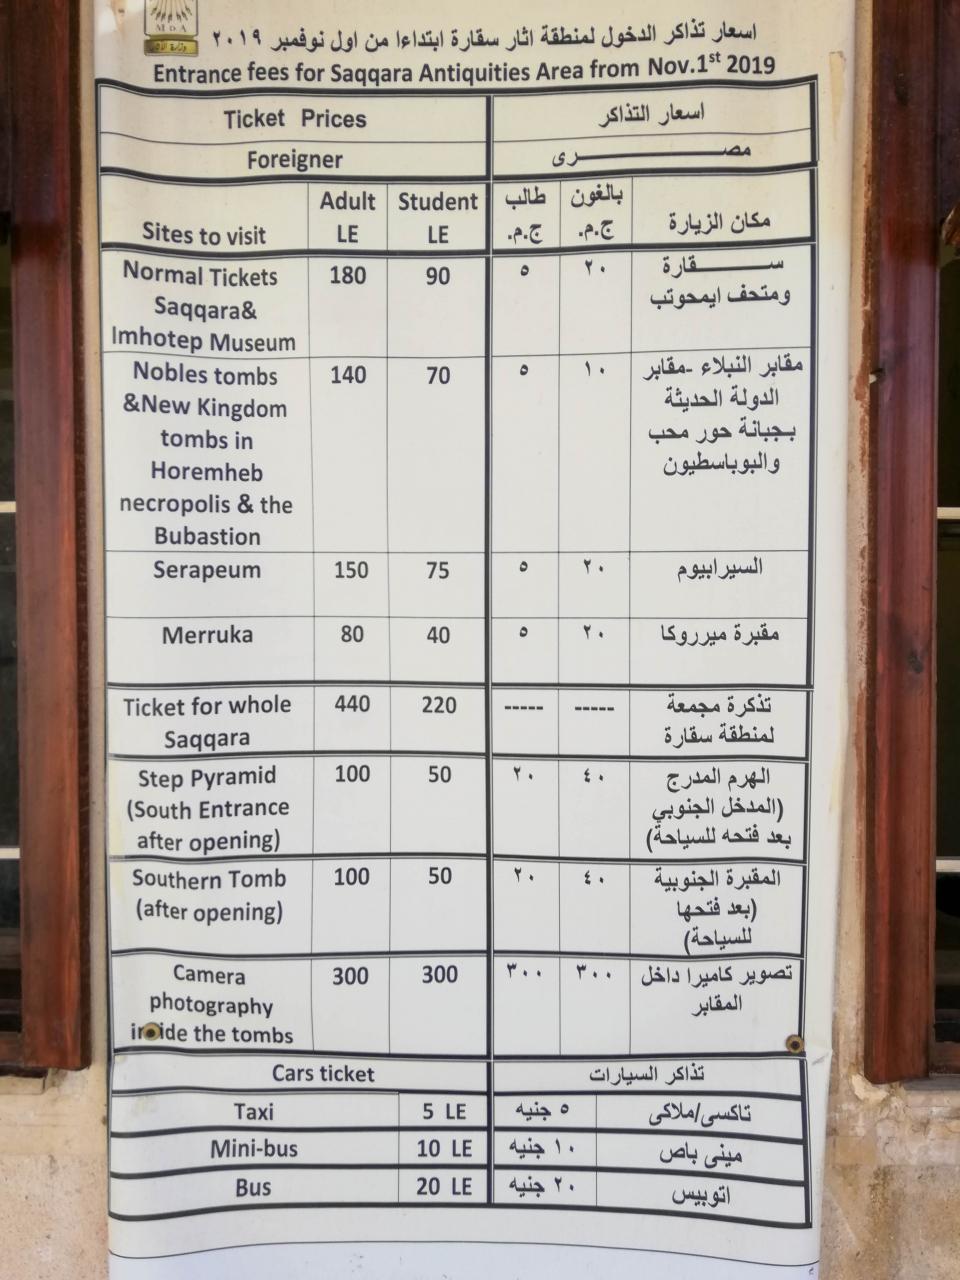 MoA
وزارة الآثار
اسعار تذاكر الدخول لمنطقة اثار سقارة ابتداءا من اول نوفمبر ٢٠١٩
Entrance fees for Saqqara Antiquities Area from Nov.1st 2019
Ticket Prices اسعار التذاكر
Foreigner مصـــــــــرى
Adult Student طالب بالغون
Sites to visit LE LE ج.م. ج.م. مكان الزيارة
Normal Tickets 180 90 ٥ ٢٠ ســـــــقارة
Saqqara& ومتحف ايمحوتب
Imhotep Museum
Nobles tombs 140 70 ٥ ١٠ مقابر النبلاء -مقابر
&New Kingdom الدولة الحديثة
tombs in بجبانة حور محب
Horemheb والبوباسطيون
necropolis & the
Bubastion
Serapeum 150 75 ٥ ٢٠ السيرابيوم
Merruka 80 40 ٥ ٢٠ مقبرة ميرروكا
Ticket for whole 440 220 ----- ----- تذكرة مجمعة
Saqqara لمنطقة سقارة
Step Pyramid 100 50 ٢٠ ٤٠ الهرم المدرج
(South Entrance (المدخل الجنوبي
after opening) بعد فتحه للسياحة)
Southern Tomb 100 50 ٢٠ ٤٠ المقبرة الجنوبية
(after opening) (بعد فتحها
للسياحة)
Camera 300 300 ٣٠٠ ٣٠٠ تصوير كاميرا داخل
photography المقابر
inside the tombs
Cars ticket تذاكر السيارات
Taxi 5 LE ٥ جنيه تاكسى/ملاكى
Mini-bus 10 LE ١٠ جنيه مينى باص
Bus 20 LE ٢٠ جنيه اتوبيس